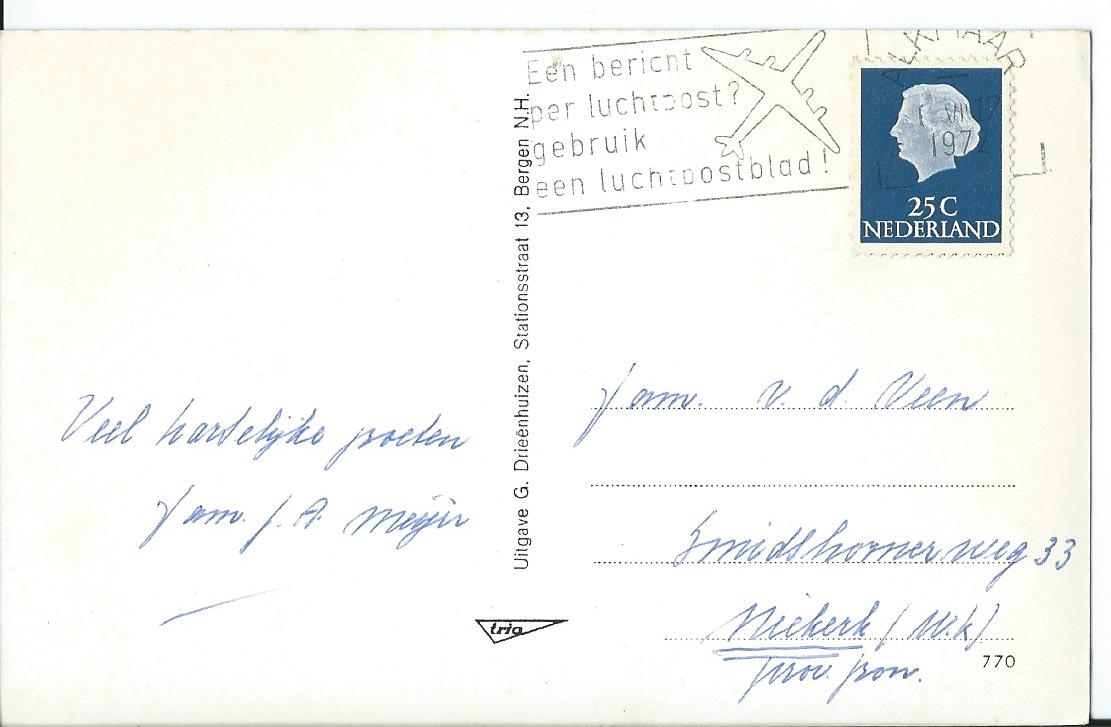 Een bericht
per luchtpost?
gebruik
een luchtpostblad!
ALKMAAR
1972
25 C
NEDERLAND
Veel hartelijke groeten
fam. J. A. Meijer
Uitgave G. Drieënhuizen, Stationsstraat 13, Bergen N.H.
trio
fam. v. d. Veen
Smidshornerweg 33
Niekerk (W.k)
prov. Gron.
770